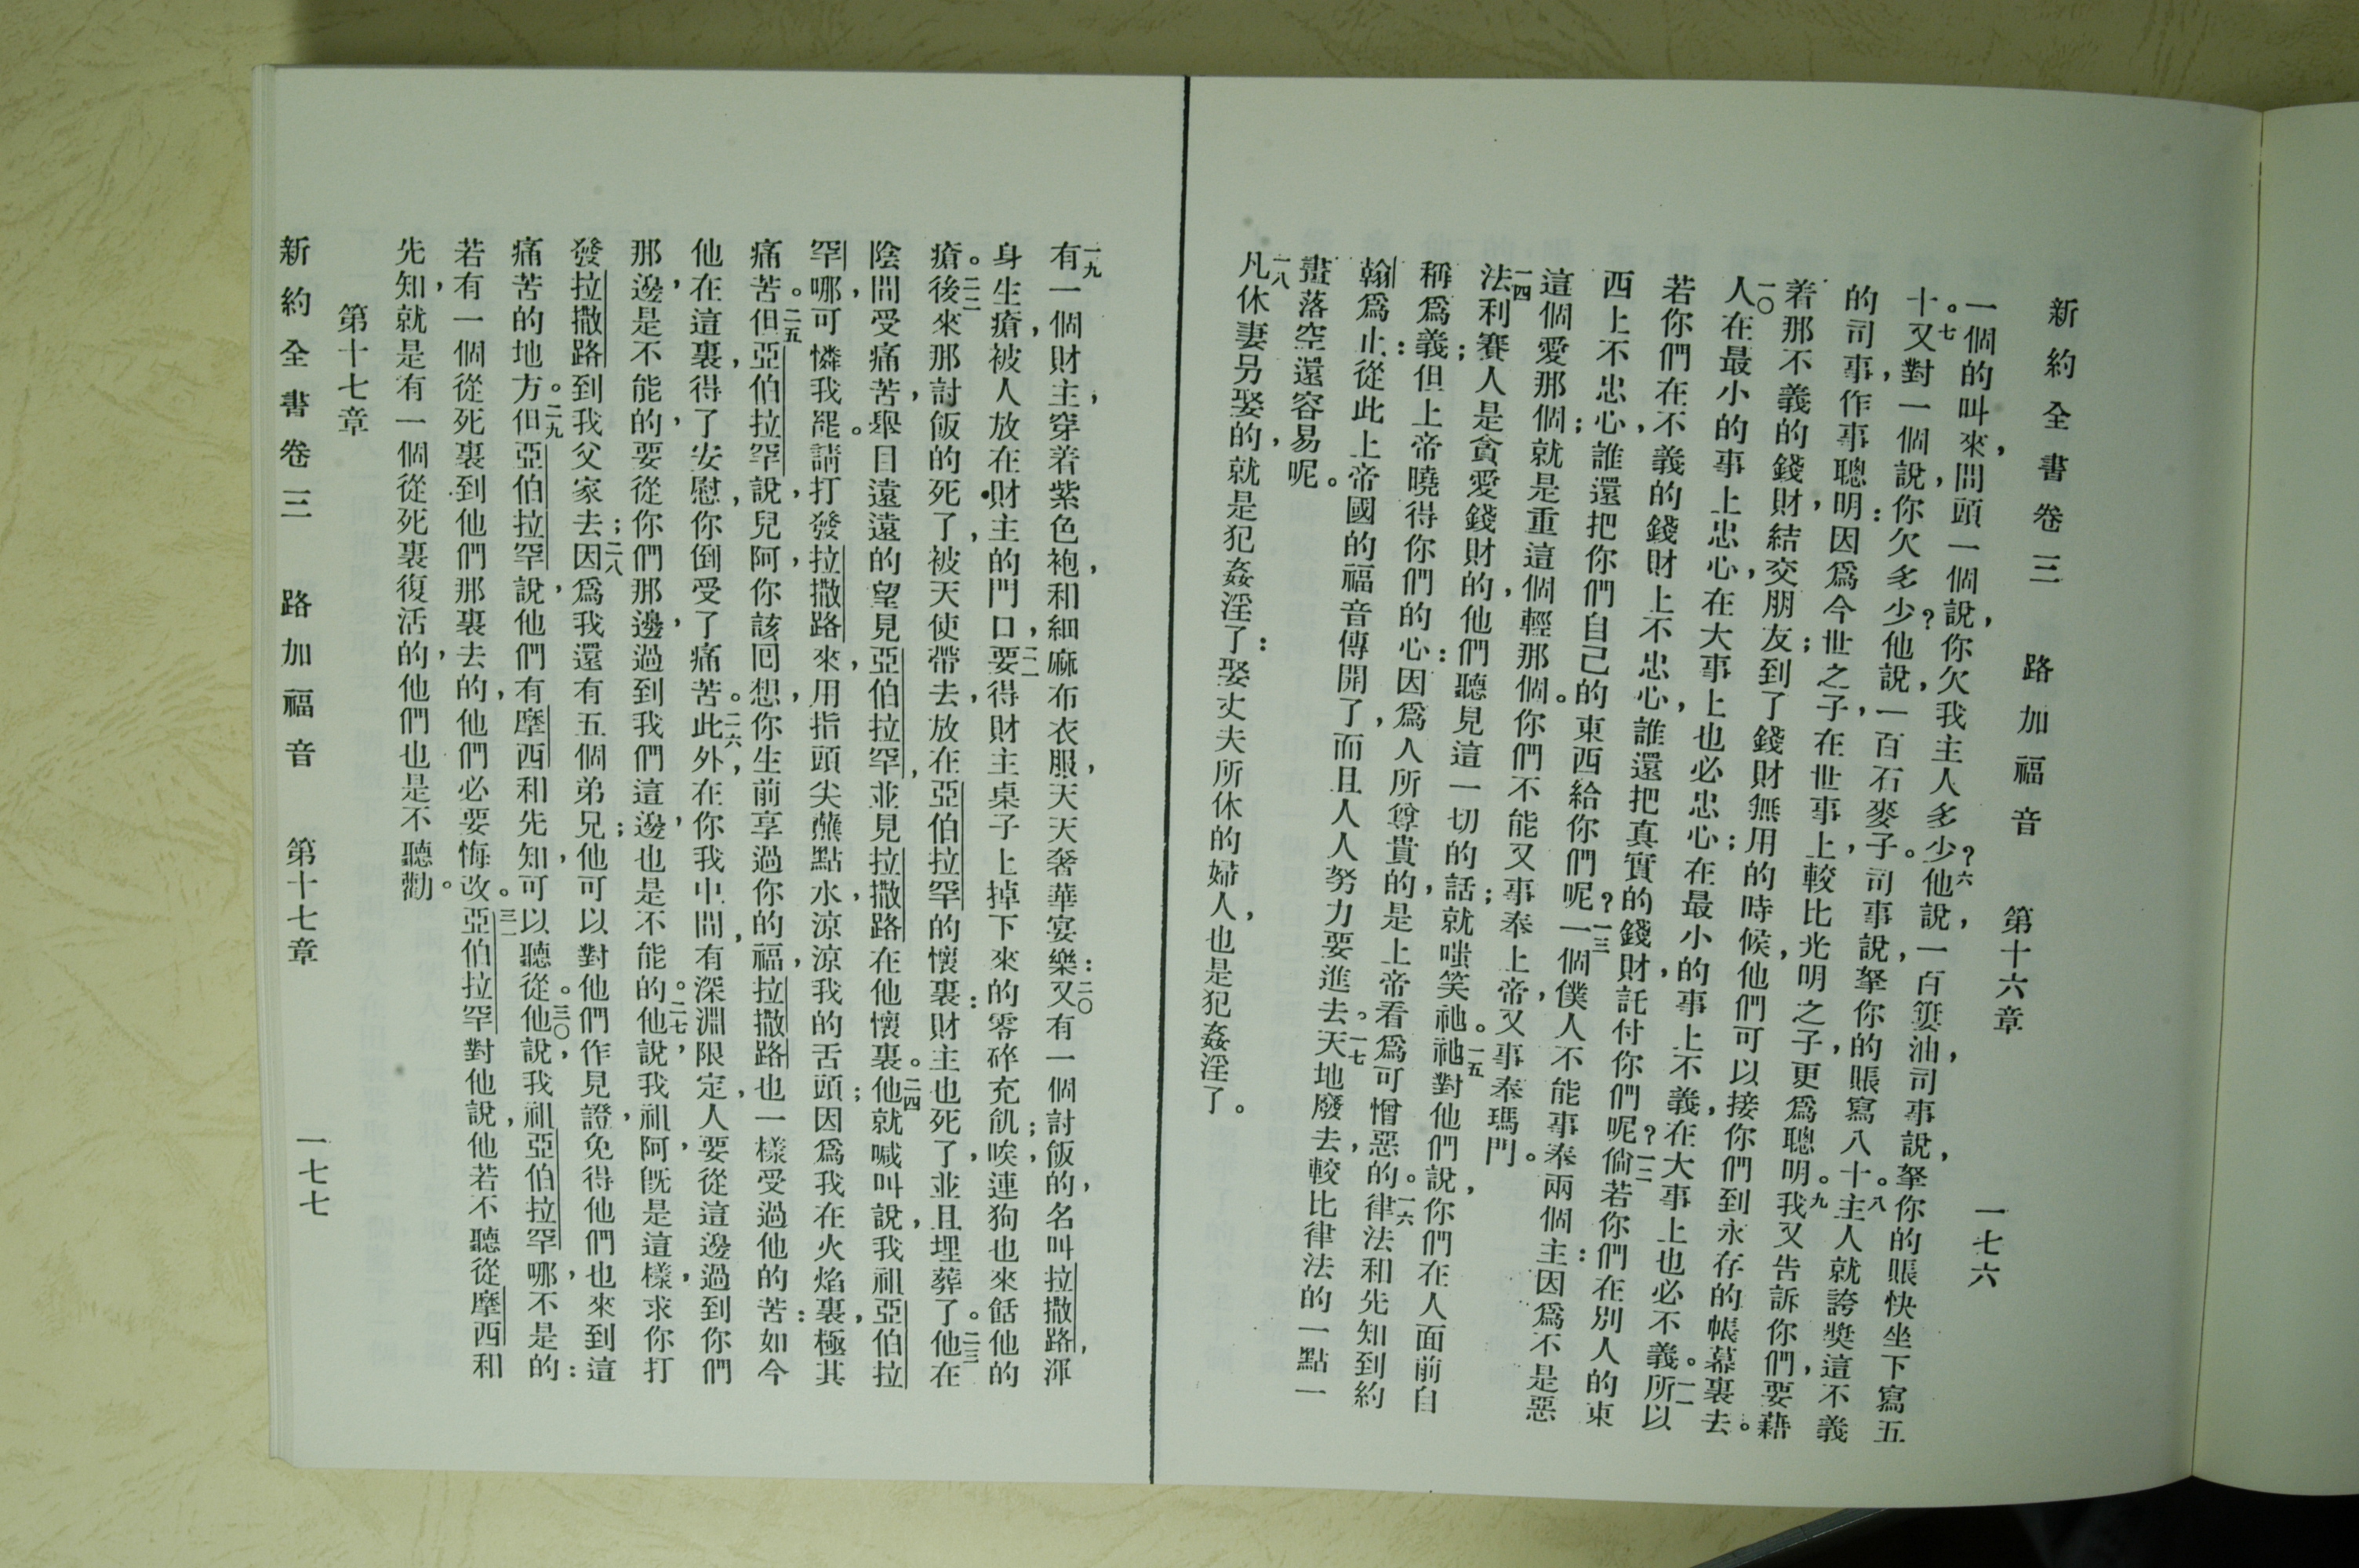 新約全書卷三　路加福音　第十六章　一七六
一個的叫來，問頭一個說，你欠我主人多少？六他說，一百簍油，司事說，拏你的賬快坐下寫五
十。七又對一個說，你欠多少？他說，一百石麥子。司事說，拏你的賬寫八十。八主人就誇奬這不義
的司事，作事聰明：因爲今世之子，在世事上，較比光明之子，更爲聰明。九我又告訴你們，要藉
着那不義的錢財，結交朋友；到了錢財無用的時候，他們可以接你們到永存的帳幕裏去。
一〇人在最小的事上忠心，在大事上也必忠心；在最小的事上不義，在大事上也必不義。一一所以
若你們在不義的錢財上不忠心，誰還把真實的錢財，託付你們呢？一二倘若你們在別人的東
西上不忠心，誰還把你們自己的東西給你們呢？一三一個僕人不能事奉兩個主：因爲不是惡
這個愛那個；就是重這個輕那個。你們不能又事奉上帝，又事奉瑪門。
一四法利賽人是貪愛錢財的，他們聽見這一切的話；就嗤笑祂。一五祂對他們說，你們在人面前自
稱爲義；但上帝曉得你們的心：因爲人所尊貴的，是上帝看爲可憎惡的。一六律法和先知到約
翰爲止：從此上帝國的福音傳開了，而且人人努力要進去。一七天地廢去，較比律法的一點一
畫落空還容易呢。
一八凡休妻另娶的，就是犯姦淫了：娶丈夫所休的婦人，也是犯姦淫了。
一九有一個財主，穿着紫色袍，和細麻布衣服，天天奢華宴樂：二〇又有一個討飯的，名叫拉撒路，渾
身生瘡，被人放在財主的門口，二一要得財主桌子上掉下來的零碎充飢；唉，連狗也來餂他的
瘡。二二後來那討飯的死了，被天使帶去，放在亞伯拉罕的懷裏：財主也死了，並且埋葬了。二三他在
陰間受痛苦，舉目遠遠的望見亞伯拉罕，並見拉撒路在他懷裏。二四他就喊叫說，我祖亞伯拉
罕哪，可憐我罷。請打發拉撒路來，用指頭尖蘸點水，涼涼我的舌頭；因爲我在火焰裏，極其
痛苦。二五但亞伯拉罕說，兒阿，你該回想，你生前享過你的福，拉撒路也一樣受過他的苦：如今
他在這裏，得了安慰，你倒受了痛苦。二六此外，在你我中間，有深淵限定，人要從這邊過到你們
那邊，是不能的，要從你們那邊，過到我們這邊，也是不能的。二七他說，我祖阿，旣是這樣，求你打
發拉撒路到我父家去；二八因爲我還有五個弟兄；他可以對他們作見證，免得他們也來到這
痛苦的地方。二九但亞伯拉罕說，他們有摩西和先知，可以聽從。三〇他說，我祖亞伯拉罕哪，不是的：
若有一個從死裏到他們那裏去的，他們必要悔改。三一亞伯拉罕對他說，他若不聽從摩西和
先知，就是有一個從死裏復活的，他們也是不聽勸。
第十七章
新約全書卷三　路加福音　第十七章　一七七